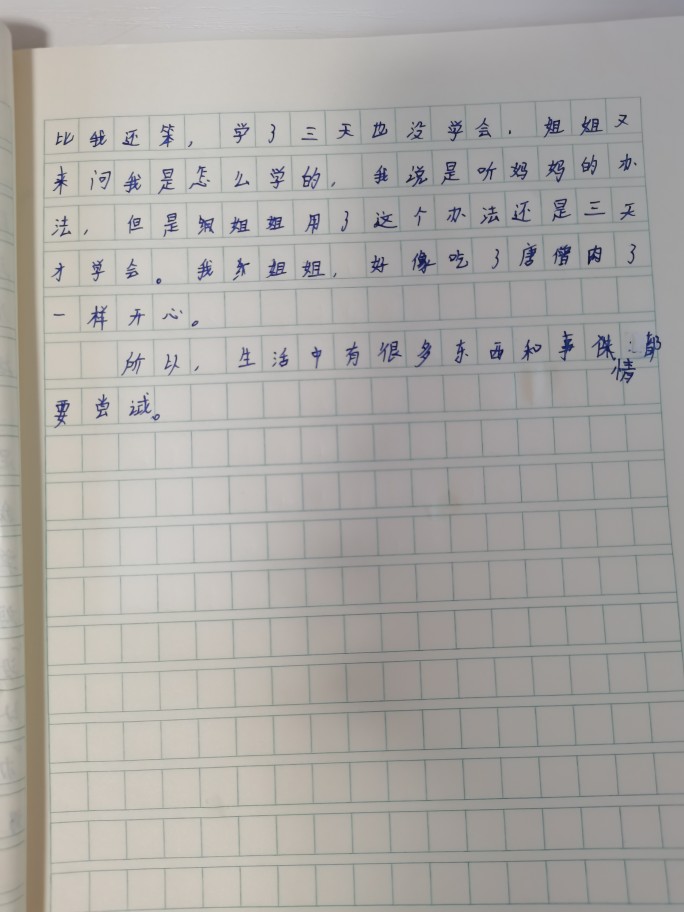 比我还笨，学了三天也没学会．姐姐又
来问我是怎么学的，我说是听妈妈的办
法，但是姐姐用了这个办法还是三天
才学会。我和姐姐，好像吃了唐僧肉了
一样开心。
所以，生活中有很多东西和事情都
要尝试。